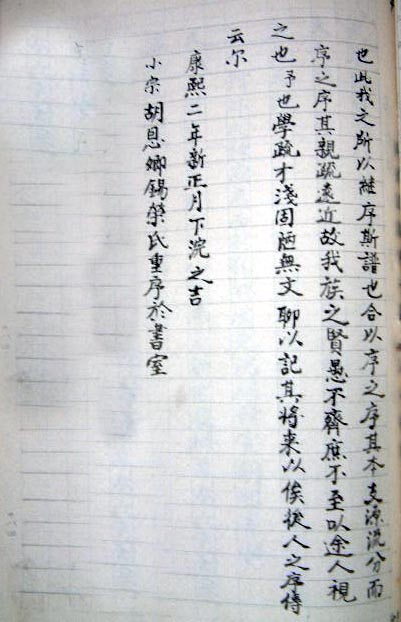 也此我之所以継序斯譜也合以序之序其本支源流分而
序之序其親疏遠近故我族之賢愚不齊庶不至以途人視
之也予也學疏才淺固陋無文聊以記其將来以俟後人之序傳
云尔
康熙二年新正月下浣之吉
小宗胡恩卿錫榮氏重序於書室